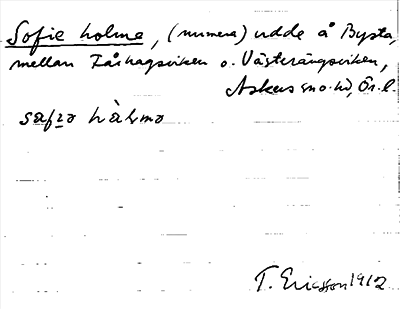 Sofie holme, (numera) udde å Bysta,
mellan Fåhagsviken o. Västerängsviken,
Askers sn o. hd, Ör. l.
T. Ericsson 1912